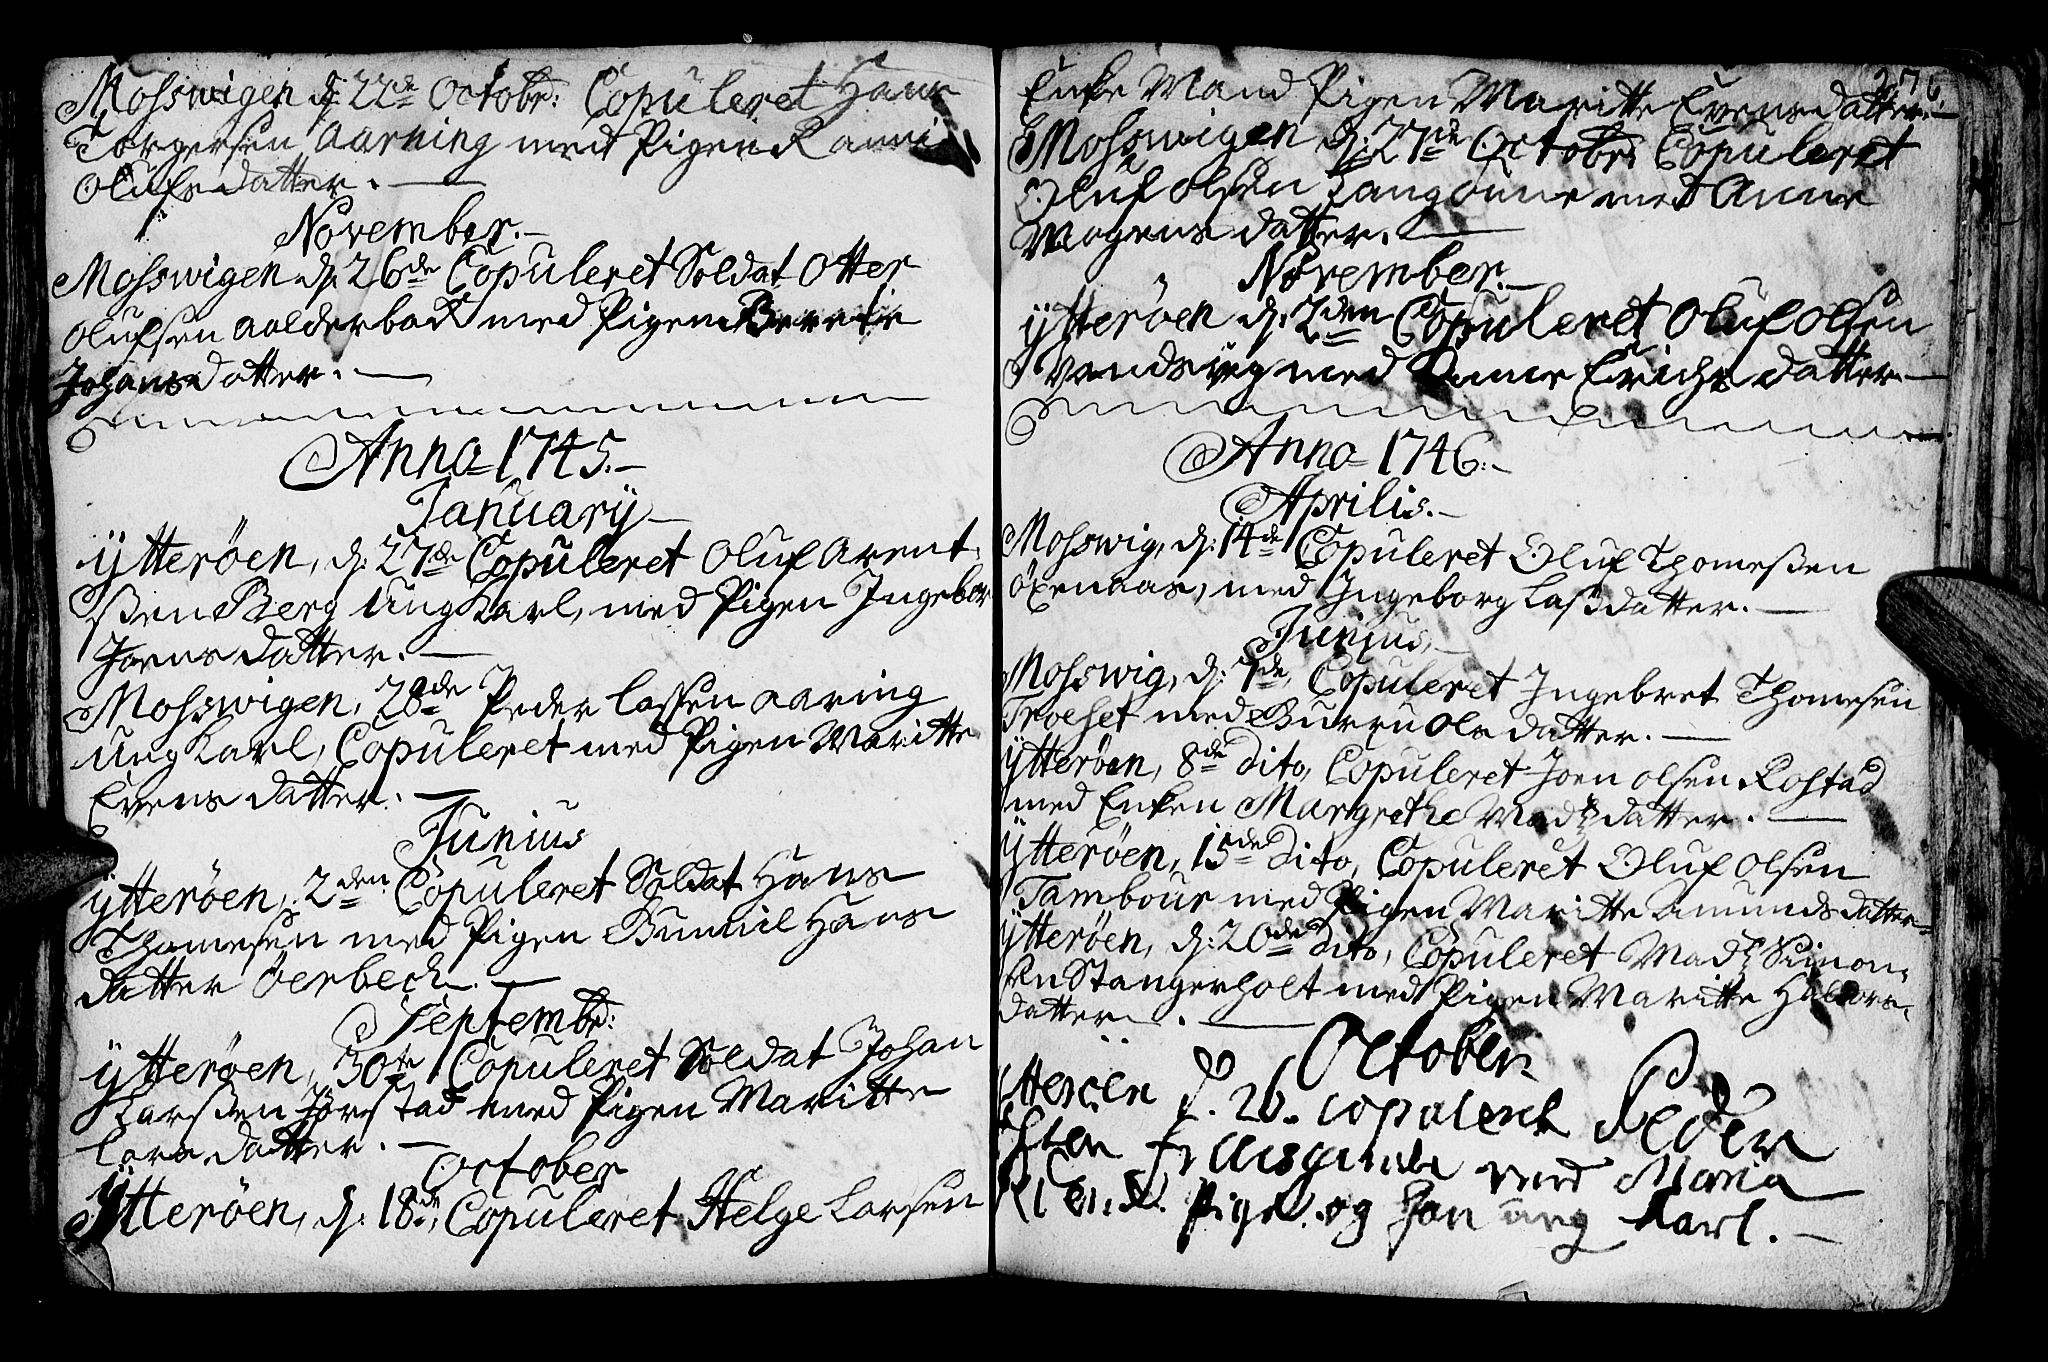 Mosswigen d: 22de Octobr: Copuleret Hans
Torgersen Aarning med Pigen Ranni
Olufsdatter.
November.
Mosswigen d: 26de Copuleret Soldat Otter
Olufsen Aalderbak med Pigen Berette
Johansdatter.
Anno 1745.
January
Ytterøen, d: 27de Copuleret Oluf Arent-
ßen Berg Ung Karl, med Pigen Ingebor
Joensdatter.
Mosswigen, 28de Peder Lassen Aaring
Ung Karl, Copuleret med Pigen Maritte
Evensdatter.
Junius
Ytterøen, 2den Copuleret Soldat Hans
Thomesen med Pigen Gunnil Hans
datter Øerbech.
Septembr:
Ytterøen, 30te Copuleret Soldat Johan
Larsßen Jørstad med Pigen Maritte
Larsdatter.
October
Ytterøen, d: 18de, Copuleret Helge Larsen
276.
Enke Mand Pigen Maritte Evensdatter.
Mosswigen d: 27de Octobr: Copuleret
Oluf Olsen Langønne med Anne
Mogensdatter.
November.
Ytterøen d: 2den Copuleret Oluf Olsen
Vandsvig med Anne Erichsdatter.
Anno 1746.
Aprilis.
Mosswig, d: 14de Copuleret Oluf Thomeßen
Øxenaas, med Ingeborg Laßdatter.
Junius.
Mosswig, d: 7de, Copuleret Ingebret Thomesen
Troeset med Gurru Olsdatter.
Ytterøen, 8de Dito, Copuleret Joen Olsen Rostad
med Enken Margrethe Madsdatter.
Ytterøen, 15de Dito, Copuleret Oluf Olsen
Tambour med Pigen Maritte Amundsdatter
Ytterøen, d: 20de Dito, Copuleret Mads Simon-
sen Stangerholt med Pigen Maritte Halvors-
datter.
October
tterøen d. 26. copuleret Peder
med Maria
Pige. og han ung Karl.